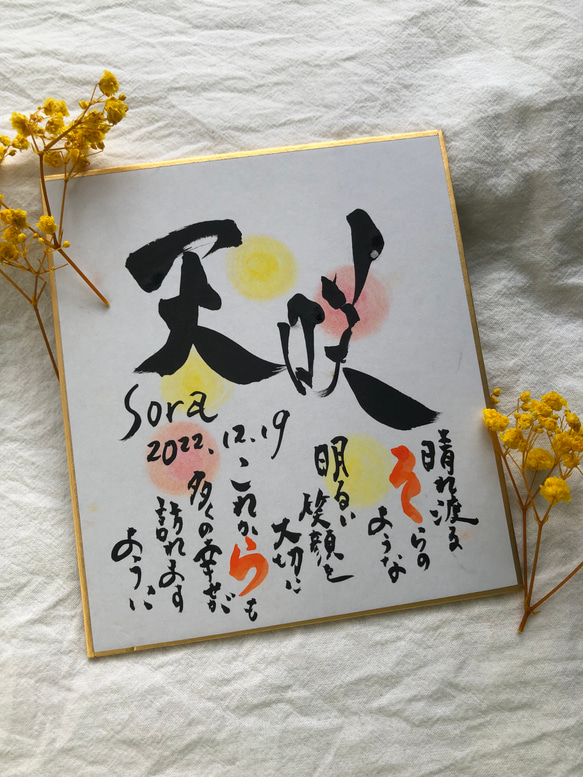 天咲
Sora
2022.12.19
晴れ渡る
そらの
ような
明るい
笑顔を
大切に
これからも
多くの幸せが
訪れます
ように